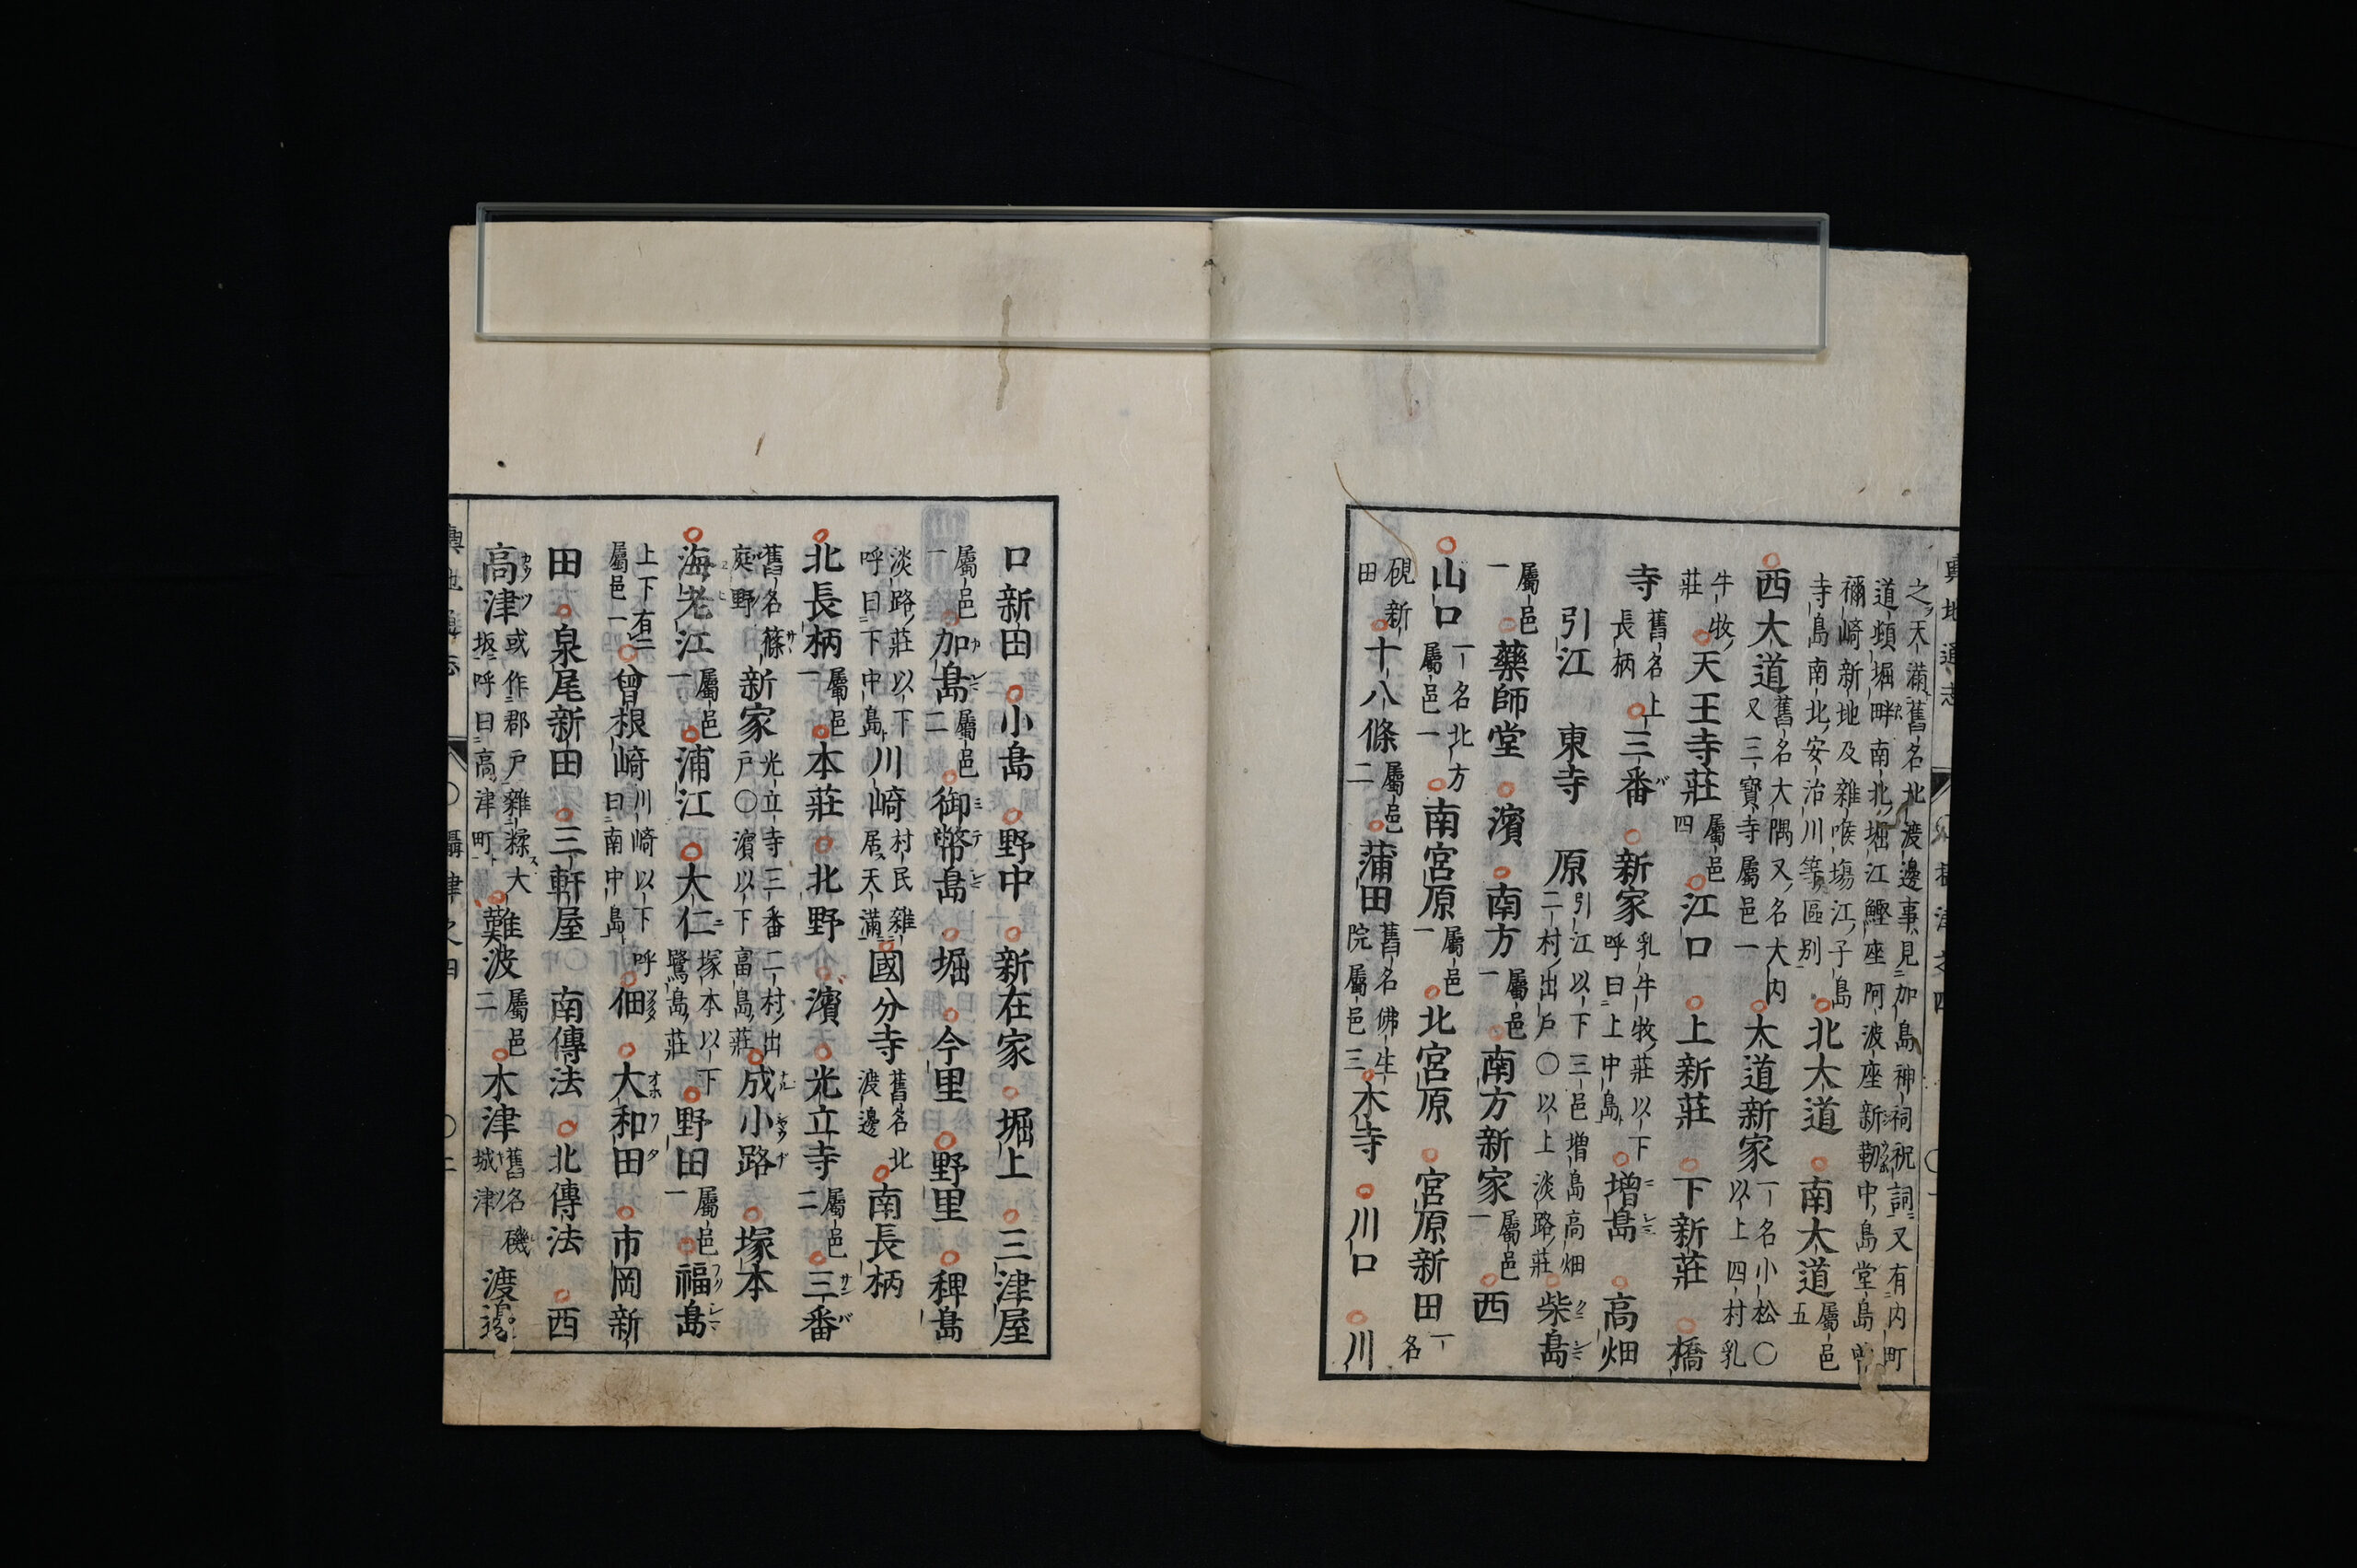 輿地通志
攝津之四
之天滿舊名北渡邊事見加島神祠祝詞又有内町
道頓堀畔南北堀江鰹座阿波座新靭中島堂島
禰崎新地及雜喉場江子島
寺島南北安治川等區別 北大道 南大道 屬邑五
西大道 舊名大隅又名大内又三寶寺屬邑一 大道新家 一名小松〇以上四村乳
牛牧莊 天王寺莊 屬邑四 江口 上新莊 下新莊 橋
寺 舊名上長柄 三番 新家 乳牛牧莊以下呼曰上中島 増島 高畑
引江 東寺 原 引江以下三邑増島高畑二村出戸〇以上淡路莊 柴島
屬邑一 藥師堂 濱 南方 屬邑一 南方新家 屬邑一 西
山口 一名北方屬邑一 南宮原 屬邑一 北宮原 宮原新田 一名
硯新田 十八條 屬邑二 蒲田 舊名佛生院屬邑三 木寺 川口 川
口新田 小島 野中 新在家 堀上 三津屋
屬邑一 加島 屬邑二 御幣島 堀 今里 野里 稗島
淡路莊以下呼曰下中島 川崎 村民雜居天滿 國分寺 舊名北渡邊 南長柄
北長柄 屬邑一 本莊 北野 濱 光立寺 屬邑二 三番
舊名篠庭野 新家 光立寺三番二村出戸〇濱以下富島莊 成小路 塚本
海老江 屬邑一 浦江 大仁 塚本以下鷺島莊 野田 屬邑一 福島
上下有二屬邑一 曾根崎 川崎以下呼曰南中島 佃 大和田 市岡新
田 泉尾新田 三軒屋 南傳法 北傳法 西
高津 或作郡戸雜糅大坂呼曰高津町 難波 屬邑二 木津 舊名磯城津 渡邊